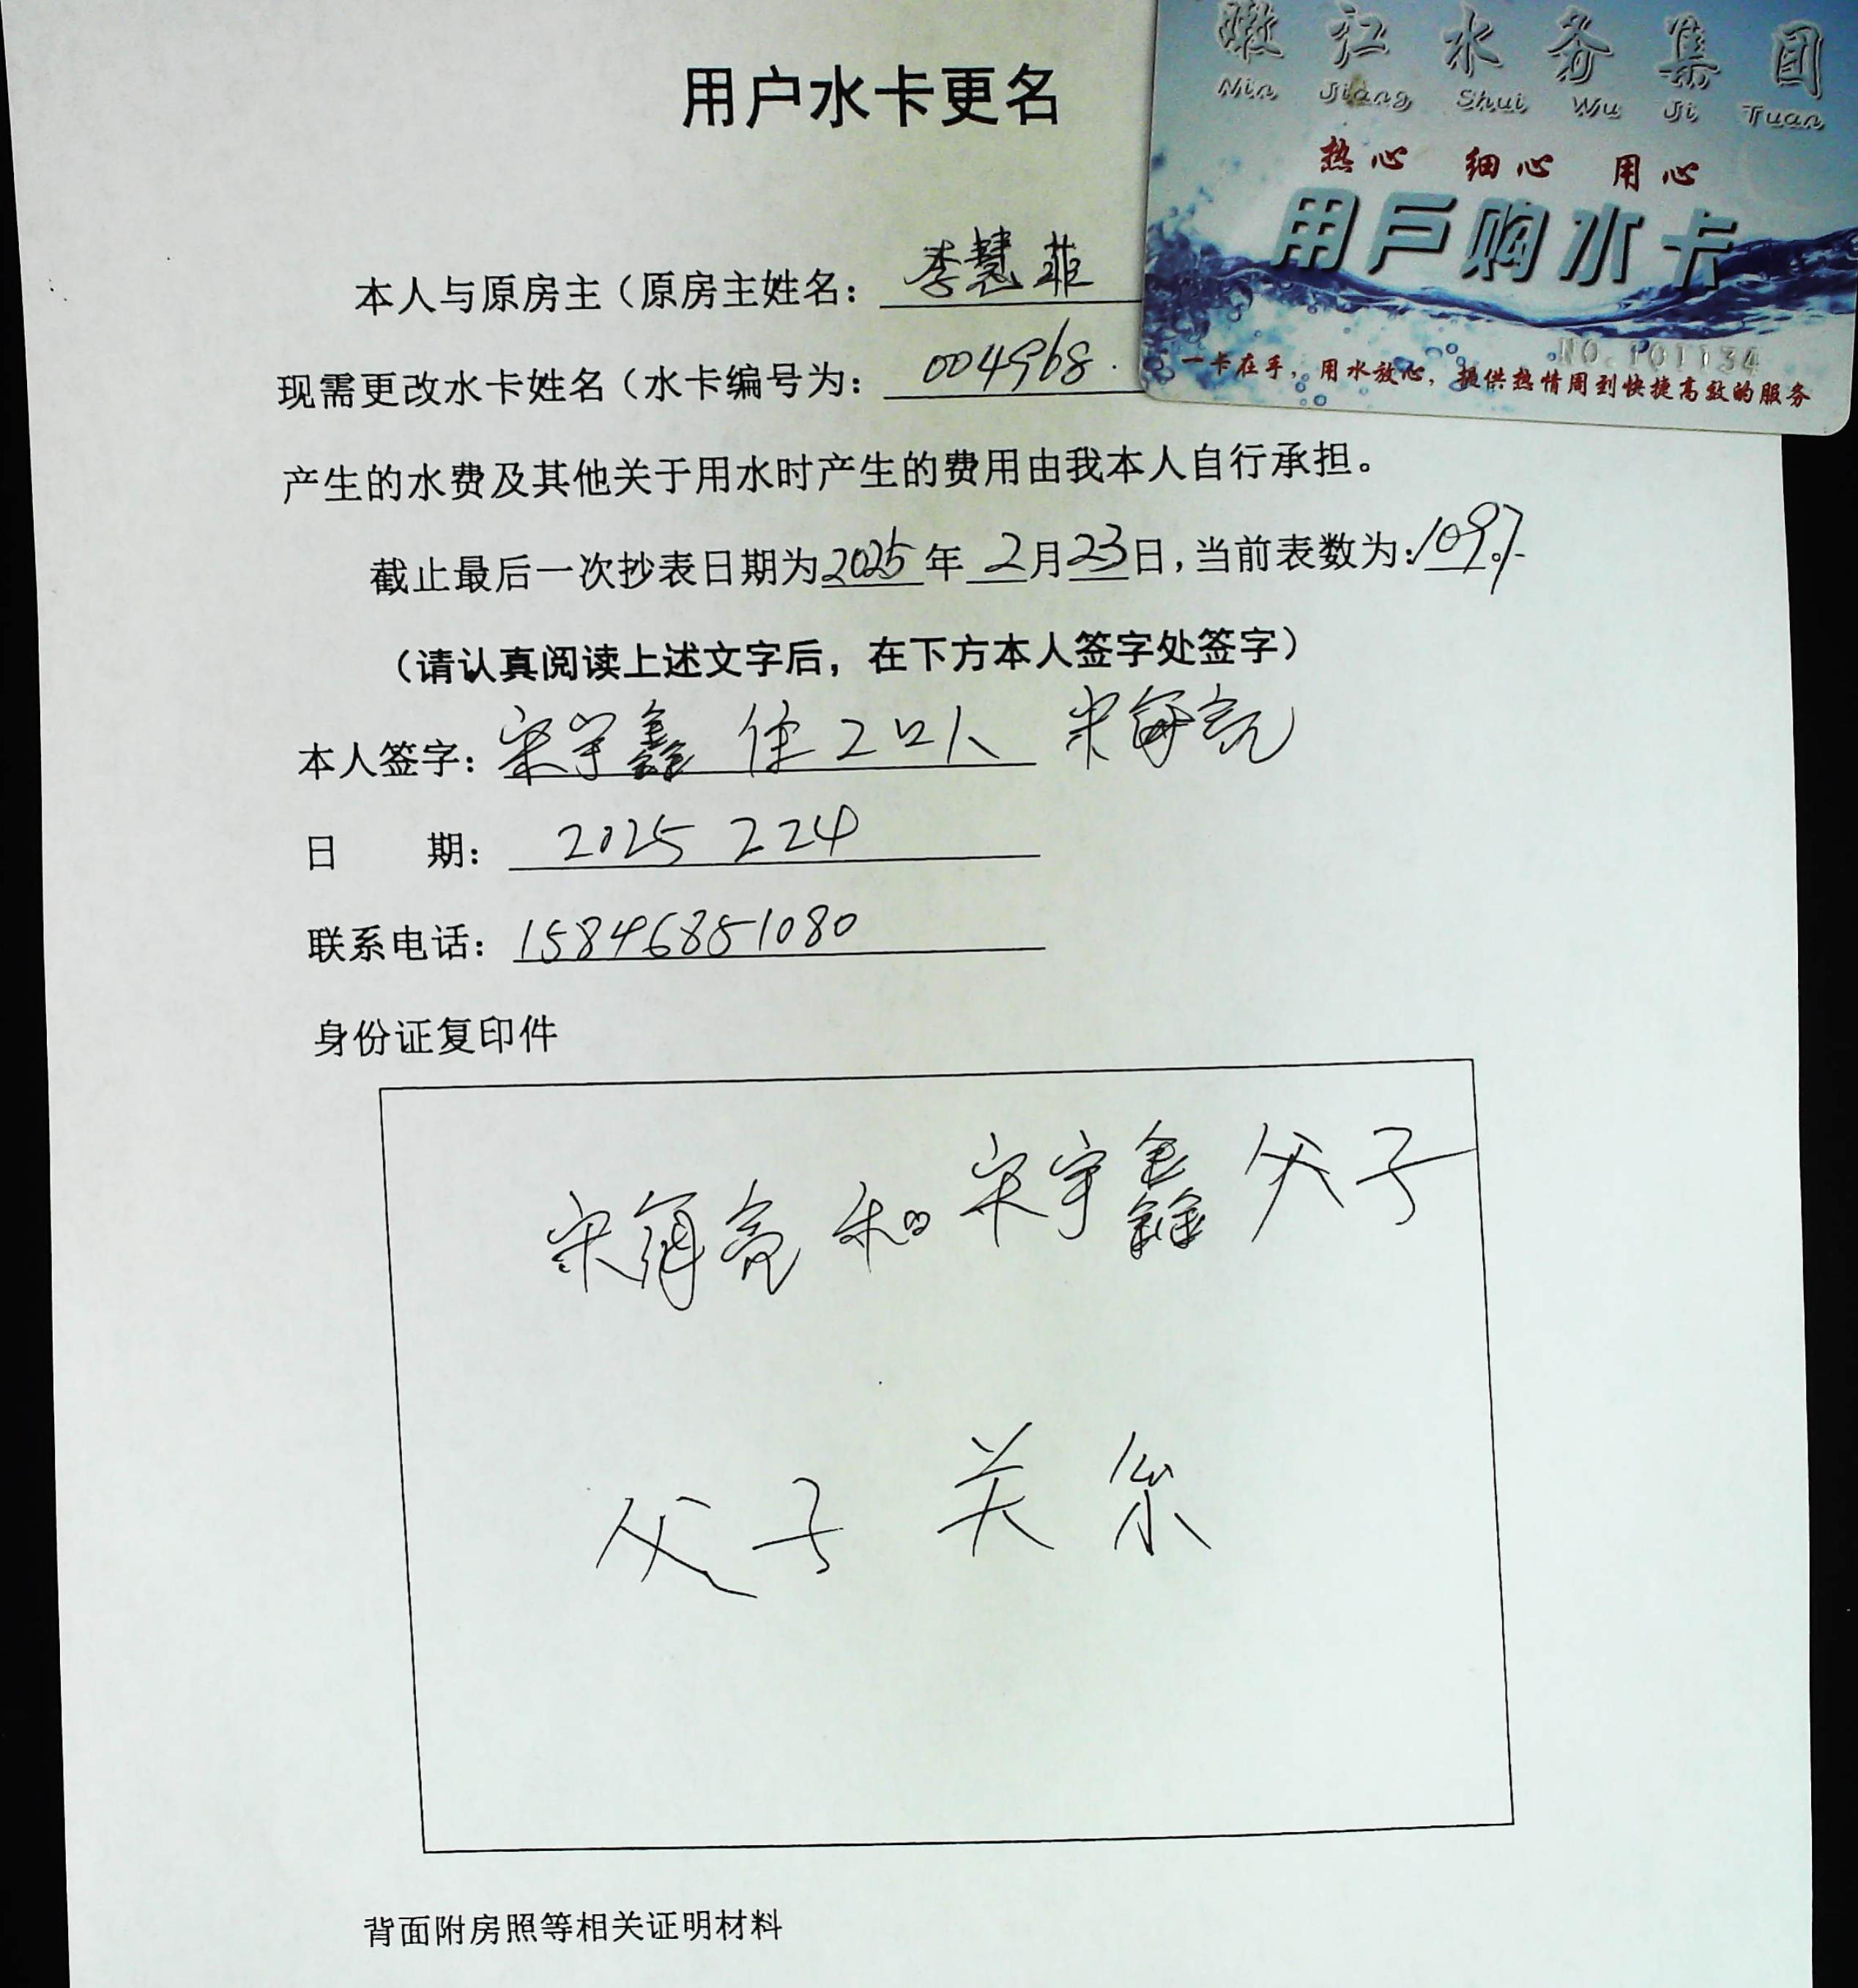 嫩江水务集团
Nin Jiang Shui Wu Ji Tuan
热心 细心 用心
用户购水卡
NO.101134
一卡在手，用水放心，提供热情周到快捷高效的服务
用户水卡更名
本人与原房主（原房主姓名：李慧菲
现需更改水卡姓名（水卡编号为：004968.
产生的水费及其他关于用水时产生的费用由我本人自行承担。
截止最后一次抄表日期为2025年2月23日，当前表数为：109
（请认真阅读上述文字后，在下方本人签字处签字）
本人签字：宋宇鑫 住2口人 宋亮
日 期：2025 224
联系电话：15846851080
身份证复印件
宋亮和宋宇鑫父子
父子关系
背面附房照等相关证明材料